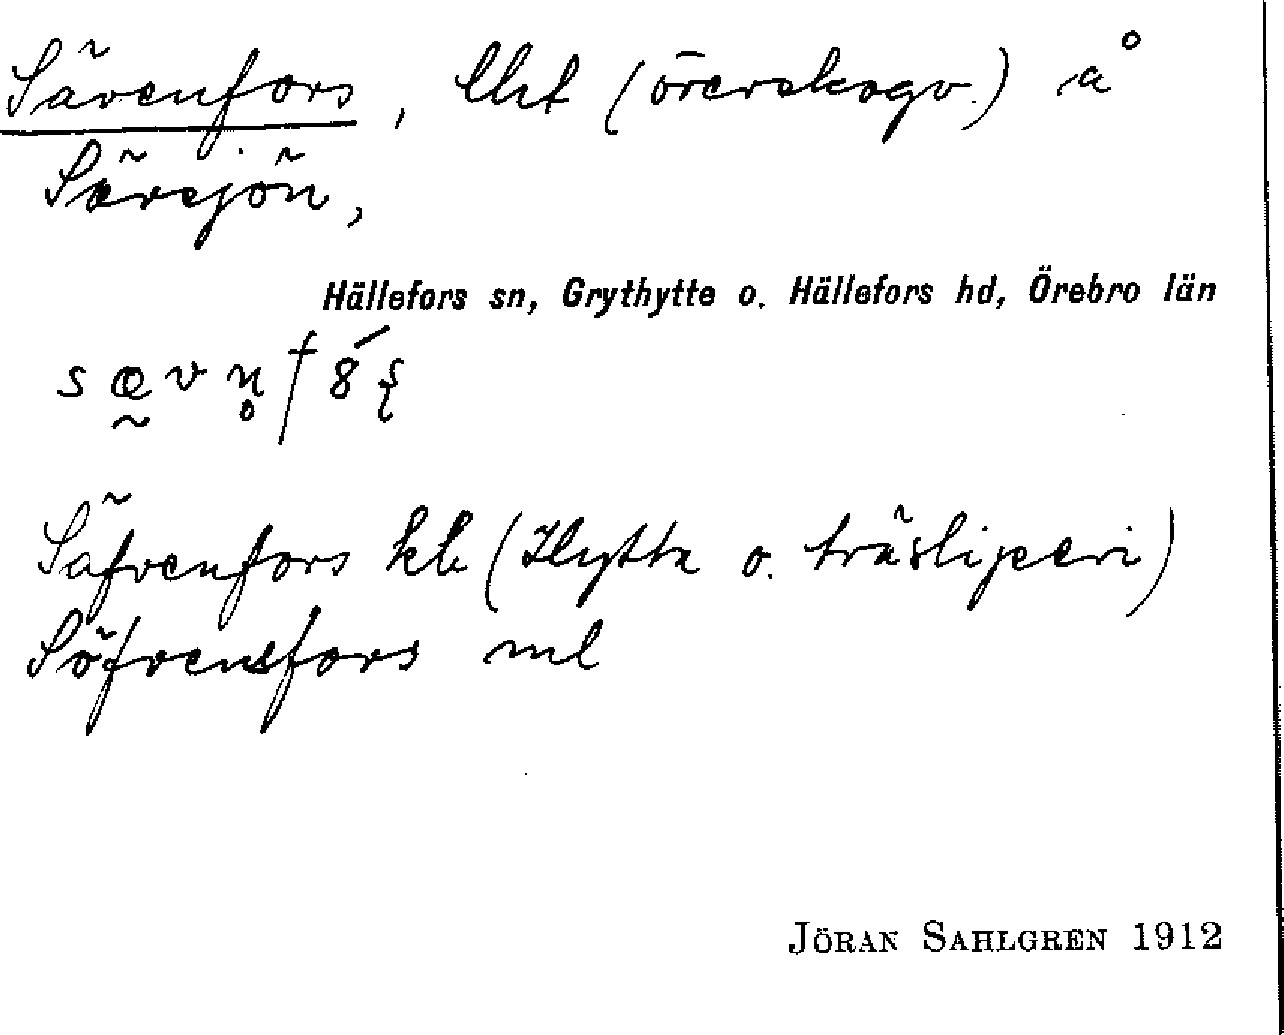 Sävenfors, lht (överskogv.) å
Sävsjön,
Hällefors sn, Grythytte o. Hällefors hd, Örebro län
Säfvenfors kb (Hytta o. träsliperi)
Söfvensfors ml
JÖRAN SAHLGREN 1912